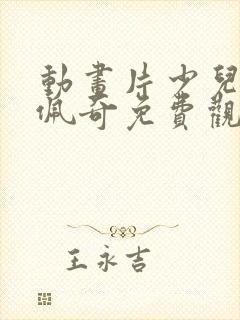 動畫片少兒
佩奇免費觀
王永吉